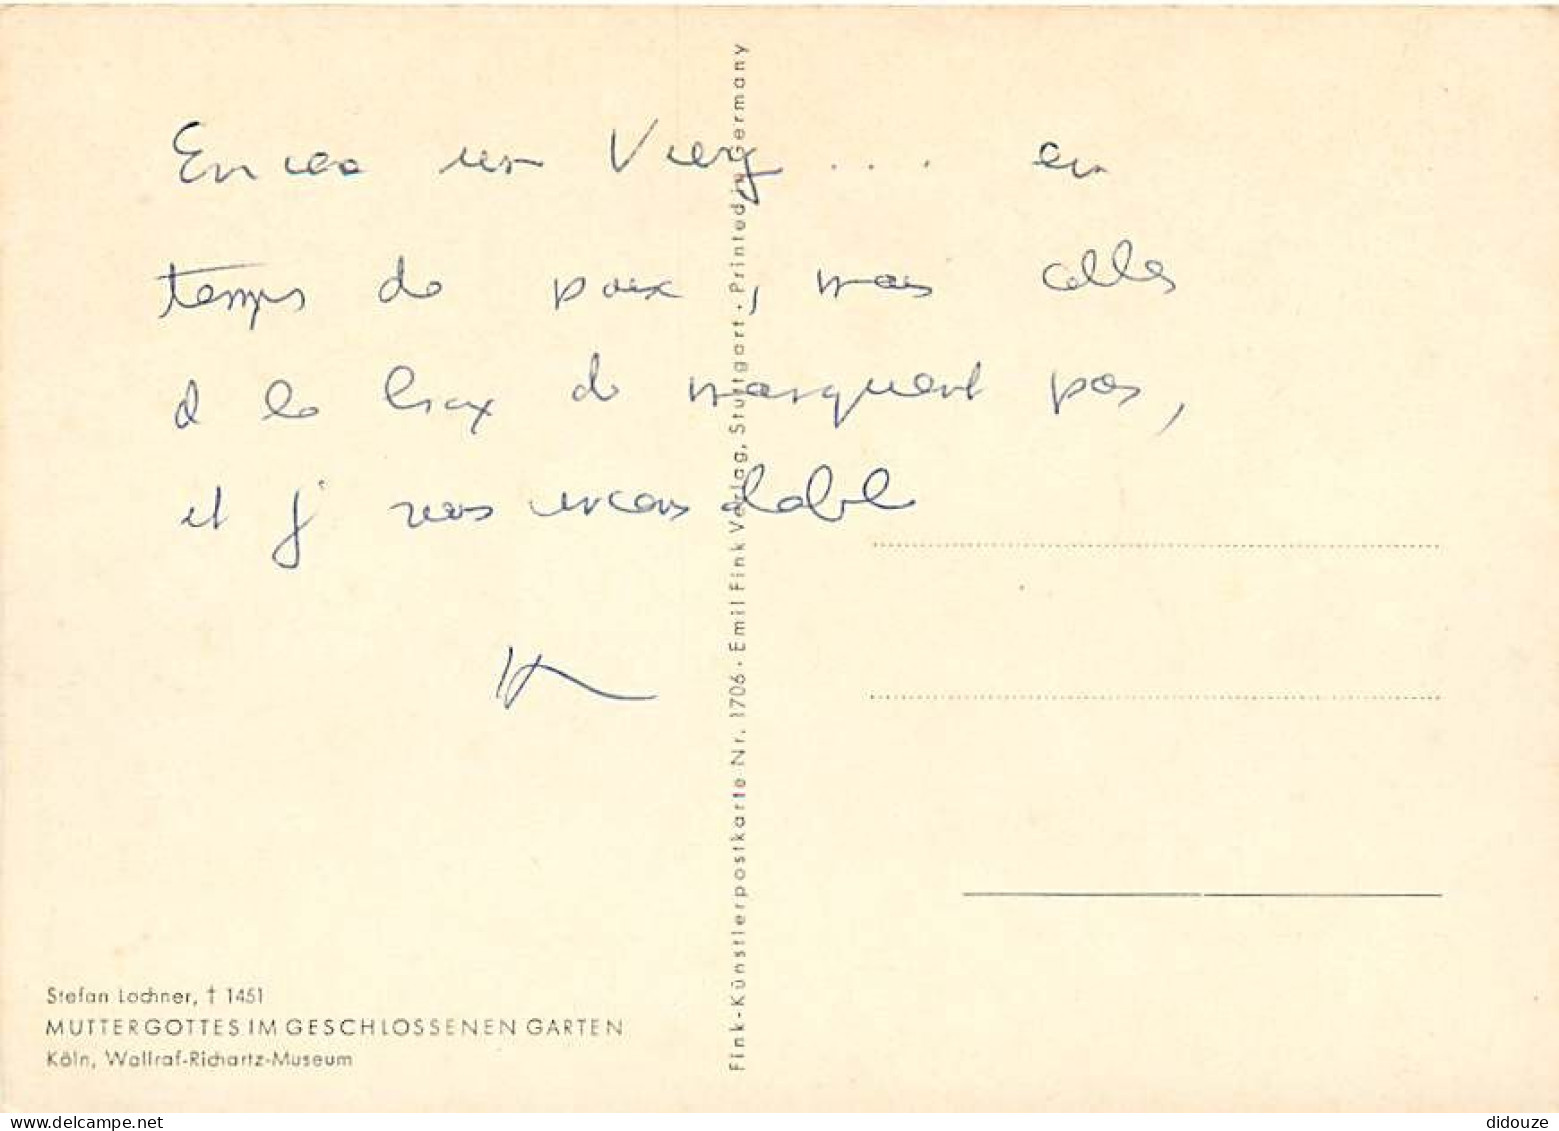 Encore un Vierg ... en
temps de paix, mais celles
de marquent pas,
et j
Stefan Lochner, † 1451
MUTTERGOTTES IM GESCHLOSSENEN GARTEN
Köln, Wallraf-Richartz-Museum
Fink-Künstlerpostkarte Nr. 1706 · Emil Fink Verlag, Stuttgart · Printed in Germany
didouze